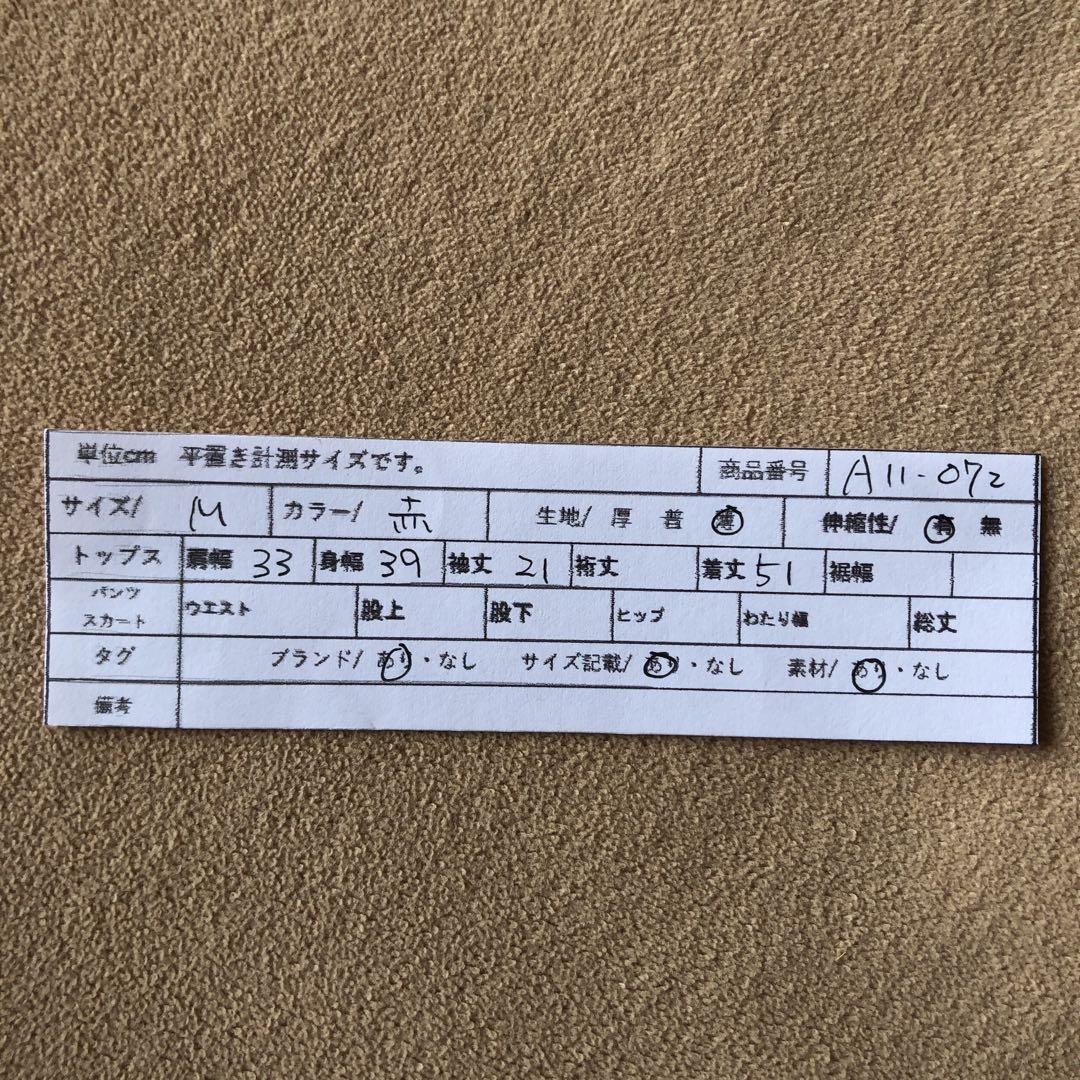 単位cm 平置き計測サイズです。 商品番号 A11-072
サイズ/ M カラー/ 赤 生地/ 厚 普 薄 伸縮性/ 有 無
トップス 肩幅 33 身幅 39 袖丈 21 裄丈 着丈 51 裾幅
パンツ スカート ウエスト 股上 股下 ヒップ わたり幅 総丈
タグ ブランド/ あり・なし サイズ記載/ あり・なし 素材/ あり・なし
備考